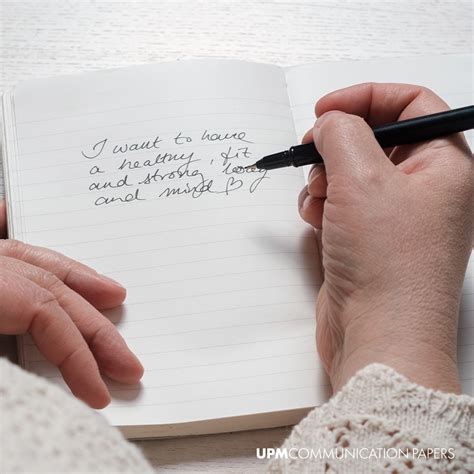 I want to have
a healthy, fit
and strong body
and mind ♡
UPM COMMUNICATION PAPERS